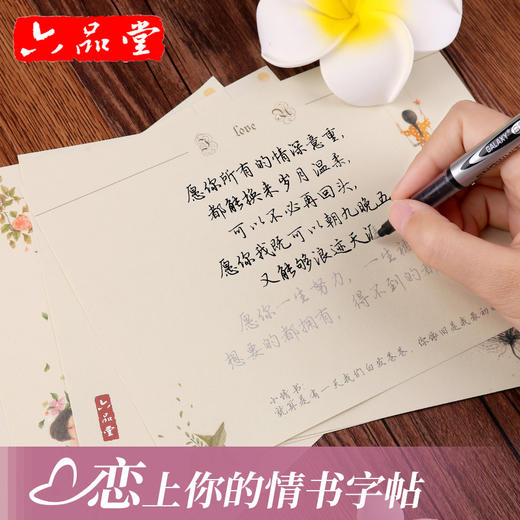 六品堂
I love U
愿你所有的情深意重,
都能换来岁月温柔,
可以不必再回头,
愿你我既可以朝九晚五
又能够浪迹天涯
愿你一生努力,一生被
想要的都拥有,得不到的都
小情书
就算是有一天我们白发苍苍,你依旧是我最初
六品堂
GALAXY
恋上你的情书字帖